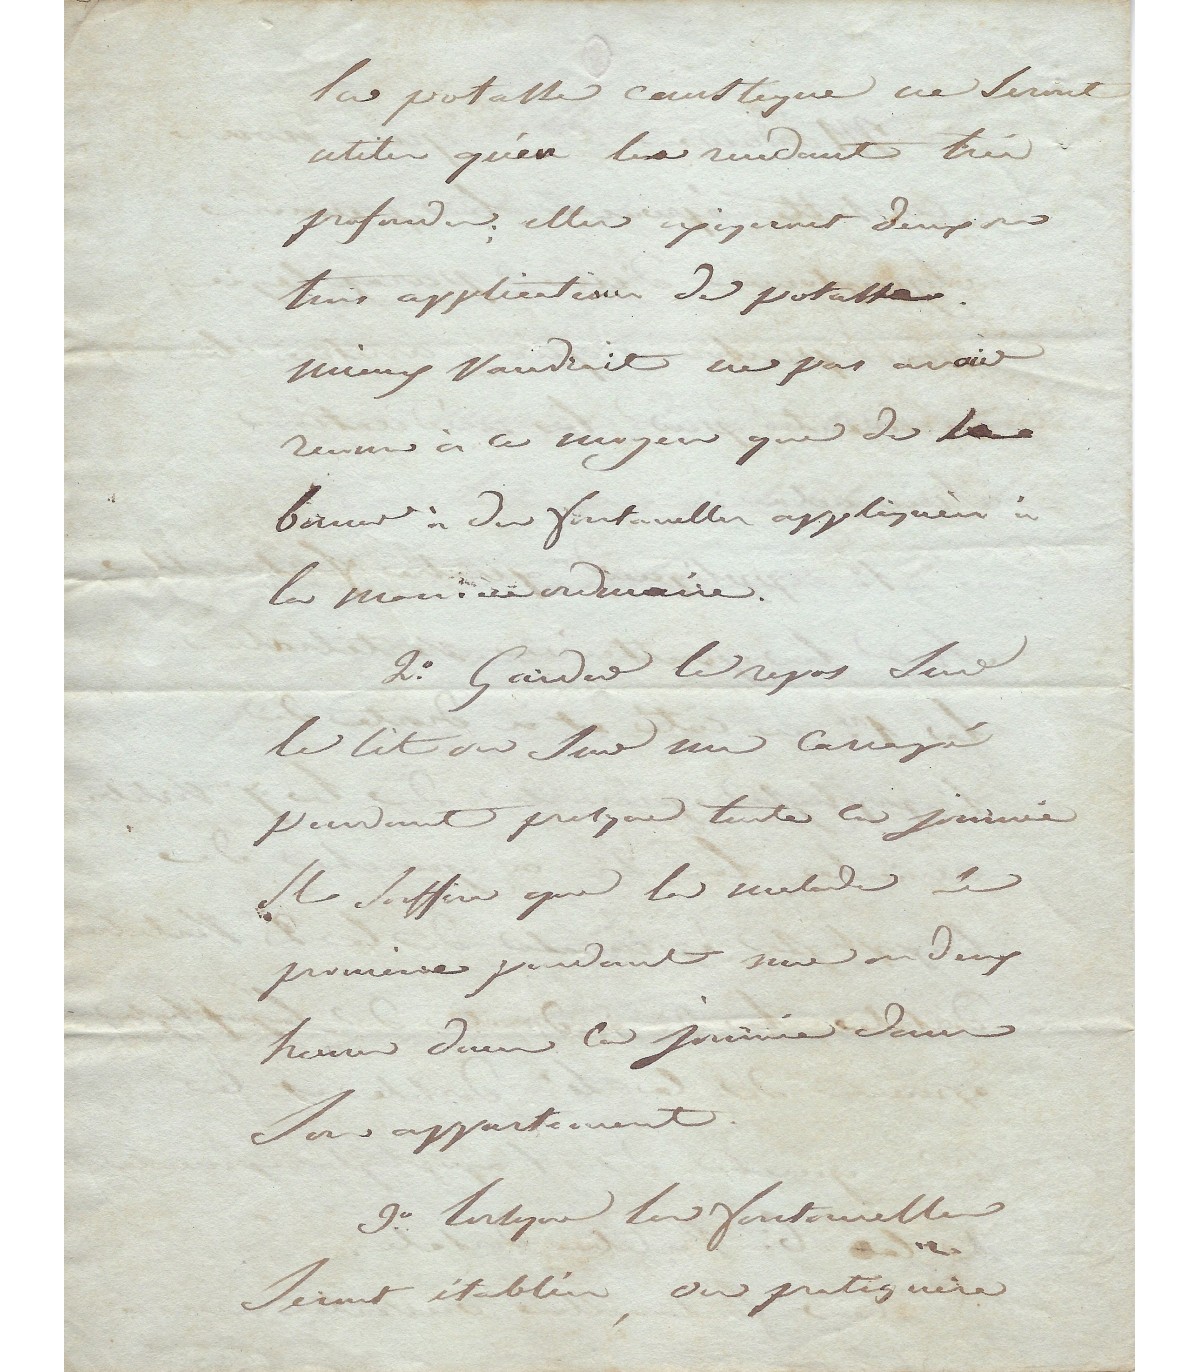 la potasse caustique ne seront
utiles qu'en les rendant très
profondes; elles exigeront deux ou
trois applications de potasse.
mieux vaudrait ne pas avoir
recours à ce moyen que de se
borner à des fontanelles appliquées à
la manière ordinaire.
2.° Garder le repos sur
le lit ou sur un canapé
pendant presque toute la journée
Il suffira que la malade se
promène pendant une ou deux
heures dans la journée dans
son appartement.
3.° lorsque les fontanelles
seront établies, on pratiquera